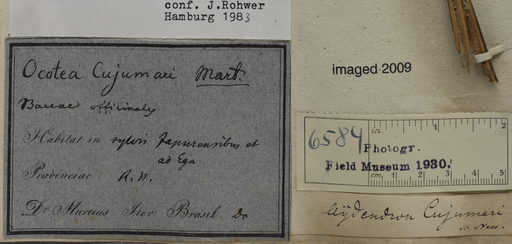 conf. J.Rohwer
Hamburg 1983
Ocotea Cujumari Mart.
Baccae officinales
Habitat in sylvis Japurensibus et
ad Ega
Provinciae R. N.
Dr Martius Iter Brasil. Dr
imaged 2009
6584
in. 1 2
Photogr.
Field Museum 1930.
cm. 1 2 3 4 5
Aÿdendron Cujumari
Nees.